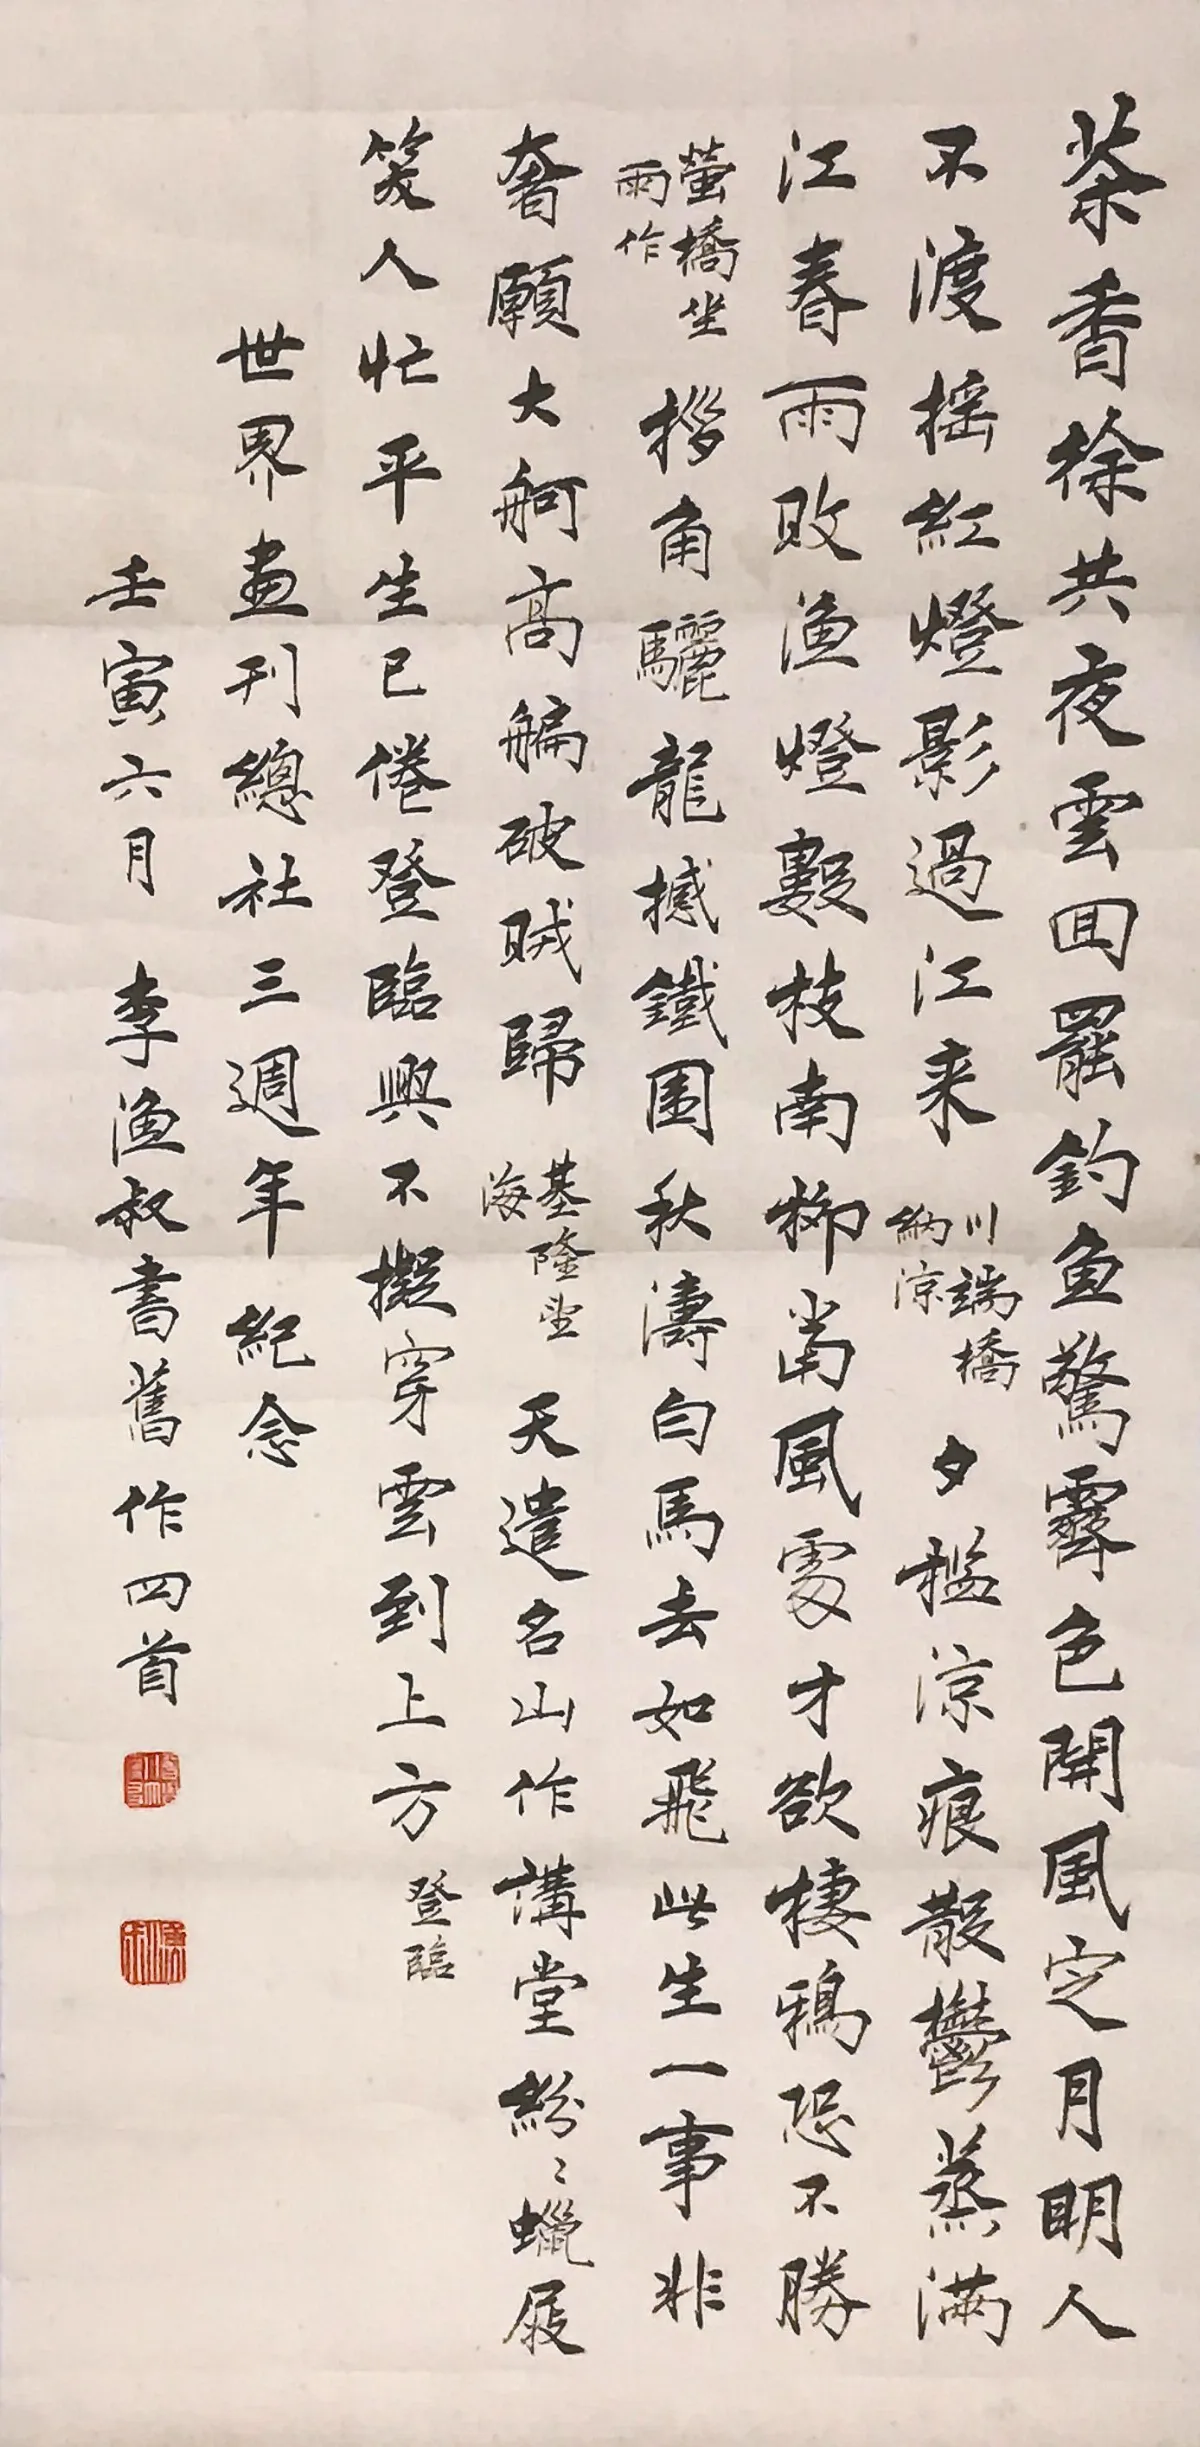 茶香徐共夜雲回罷釣魚驚霽色開風定月明人
不渡搖紅燈影過江来 川端橋納涼 夕檻涼痕散鬱蒸滿
江春雨敗渔燈數枝南柳當風處才欲棲鴉恐不勝
螢橋坐雨作 拶角驪龍撼鐵围秋濤白馬去如飛此生一事非
奢願大舸高艑破賊歸 基隆望海 天遣名山作講堂紛〻蠟屐
笑人忙平生已倦登臨興不擬穿雲到上方 登臨
世界畫刊總社三週年紀念
壬寅六月 李渔叔書舊作四首